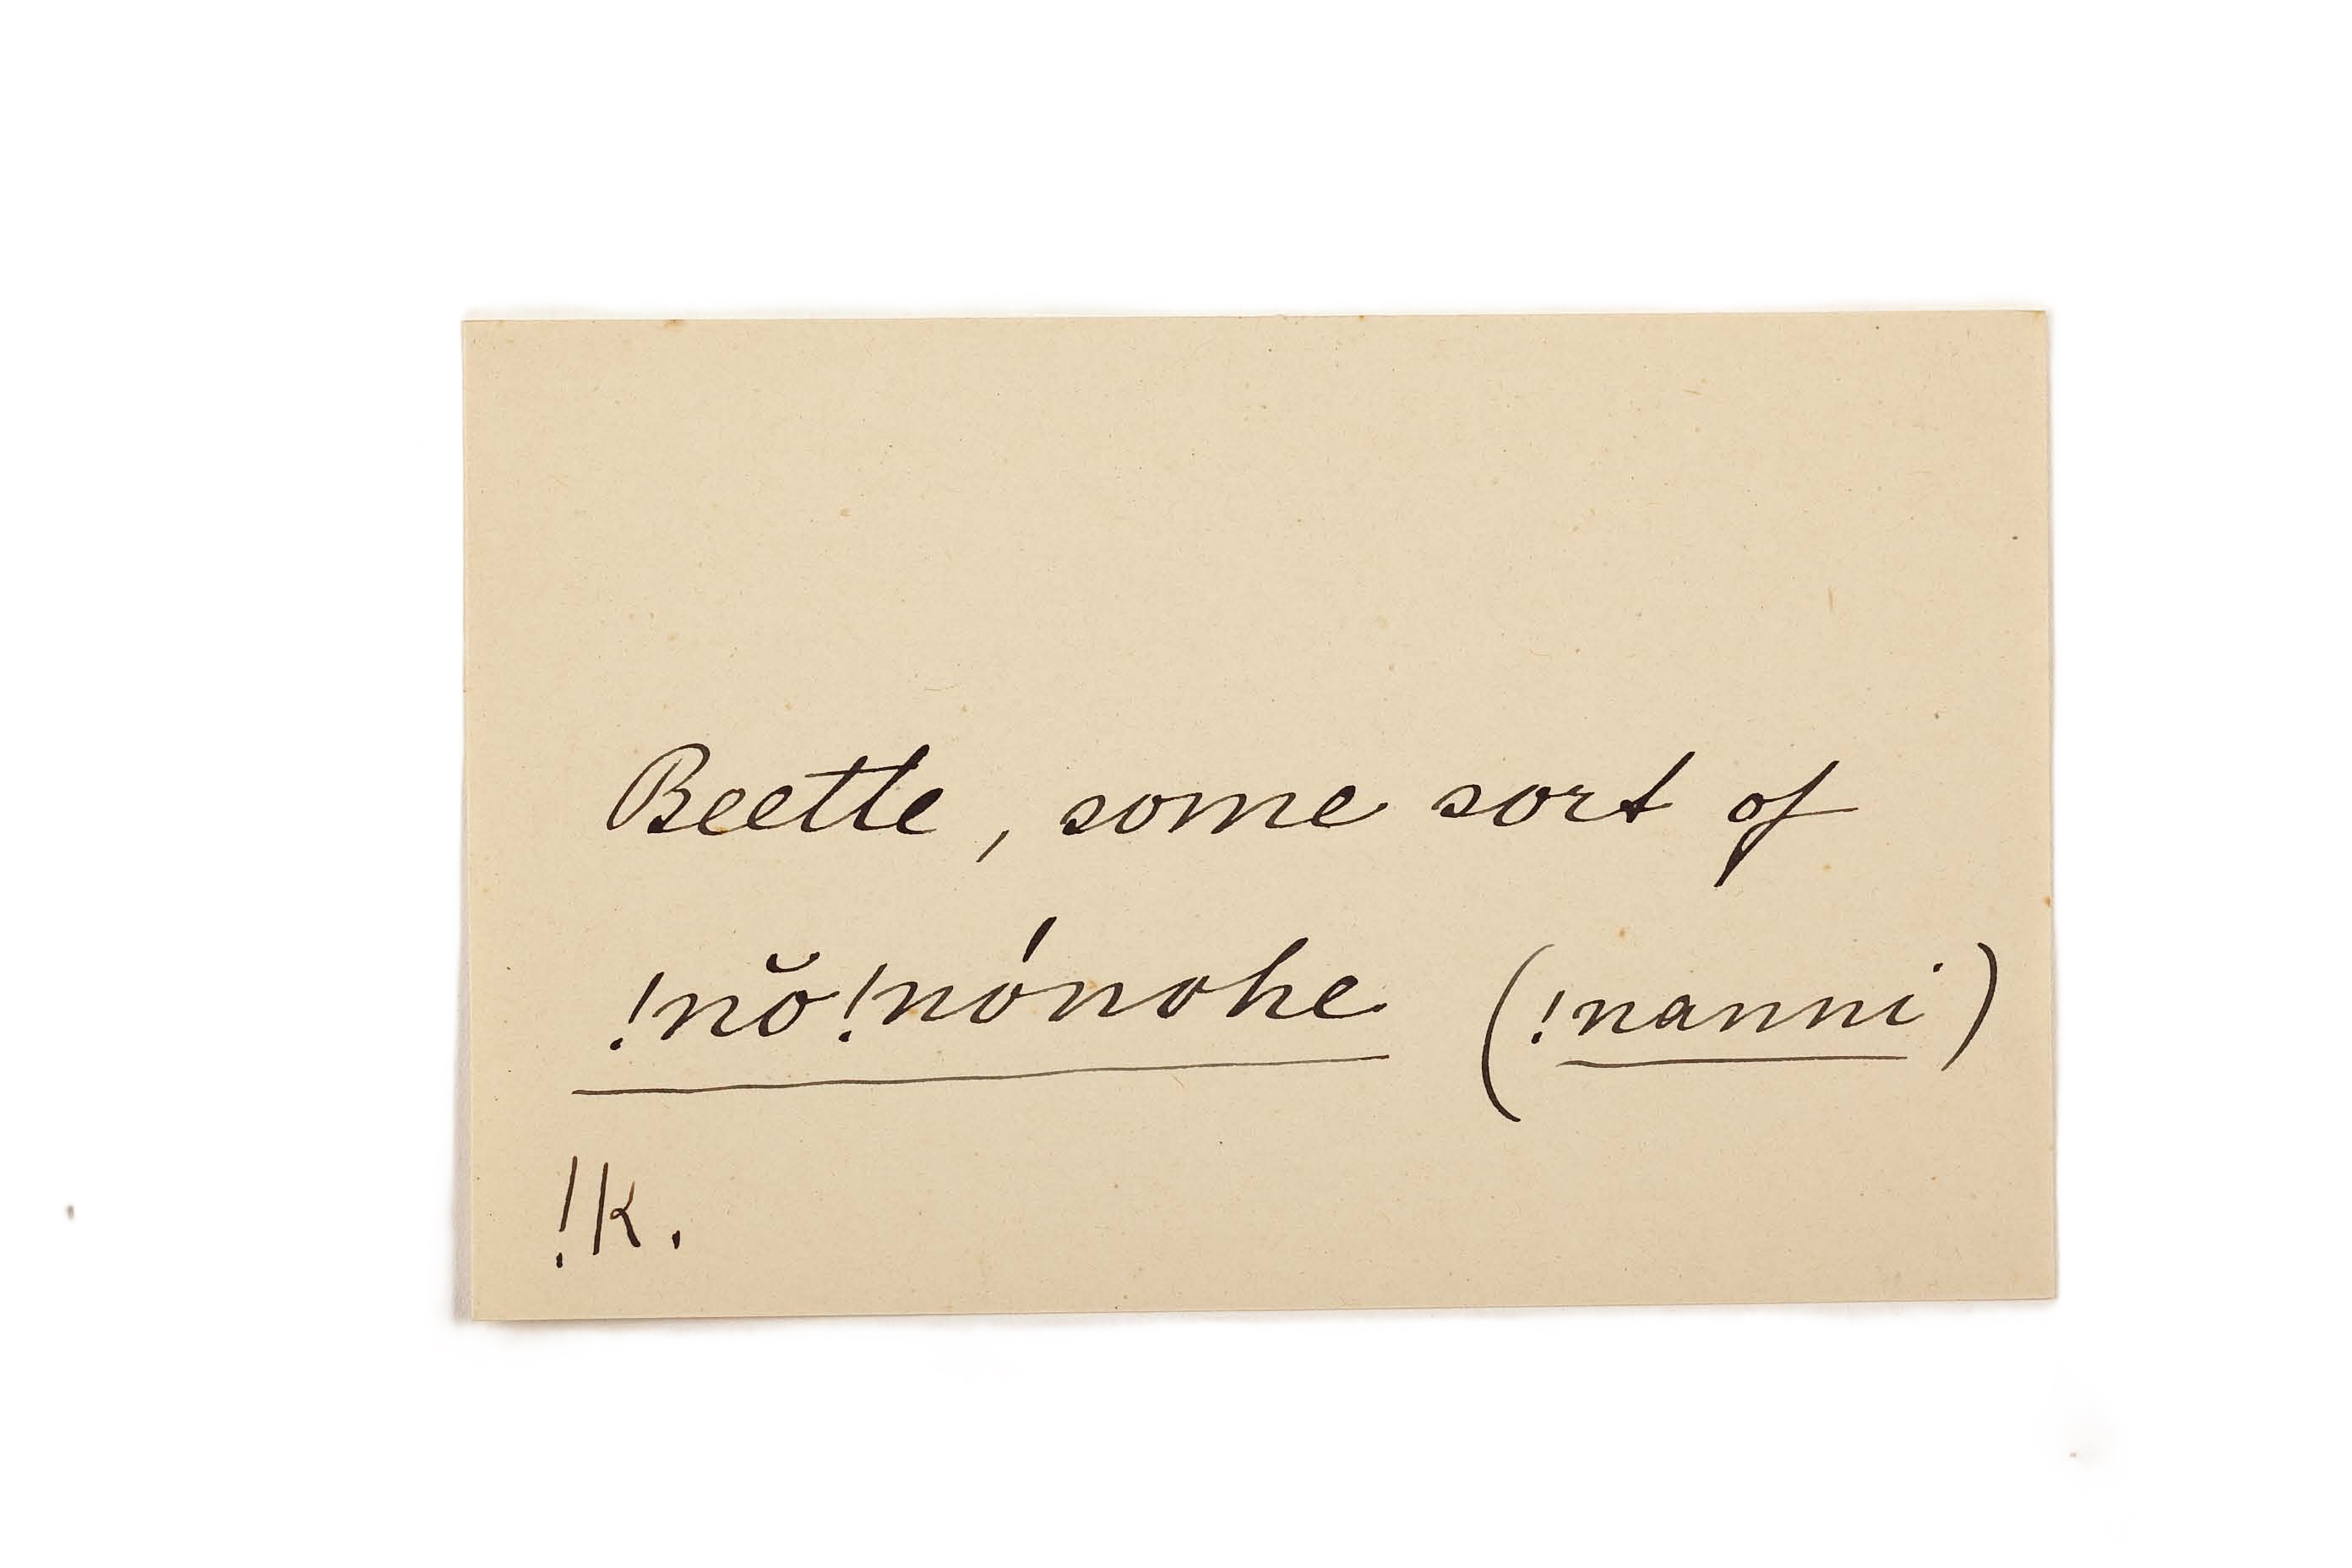 Beetle, some sort of
!nŏ!nónohe (!nanni)
!k.